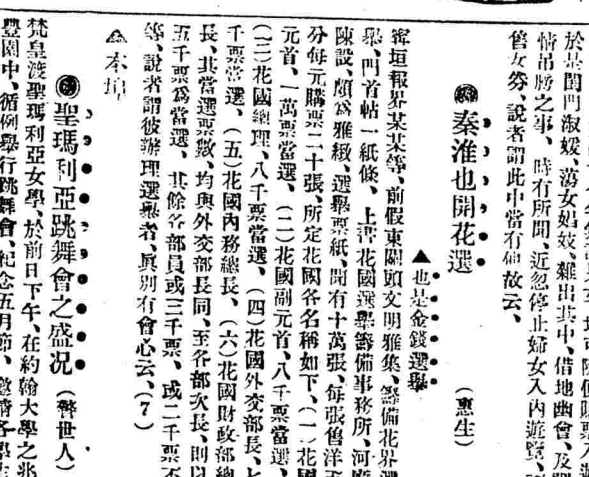 於是閨門淑媛、蕩女娼妓、雜出其中、借地幽會、及
情吊膀之事、時有所聞、近忽停止婦女入內遊覽、
售女券、說者謂此中當有他故云、
秦淮也開花選
▲也是金錢選舉
(惠生)
甯垣報界某某等、前假東關頭文明雅集、籌備花界選
舉、門首帖一紙條、上書花國選舉籌備事務所、河廳
陳設、頗爲雅緻、選舉票紙、聞有十萬張、每張售洋五
分每元購票二十張、所定花國各名稱如下、(一)花國
元首、一萬票當選、(二)花國副元首、八千票當選、
(三)花國總理、八千票當選、(四)花國外交部長、七
千票當選、(五)花國內務總長、(六)花國財政部總
長、其當選票數、均與外交部長同、至各部次長、則以
五千票爲當選、其餘各部員或三千票、或二千票不
等、說者謂彼辦理選舉者、眞別有會心云、(7)
本埠
聖瑪利亞跳舞會之盛况
(警世人)
梵皇渡聖瑪利亞女學、於前日下午、在約翰大學之兆
豐園中、循例舉行跳舞會、紀念五月節、邀請各學